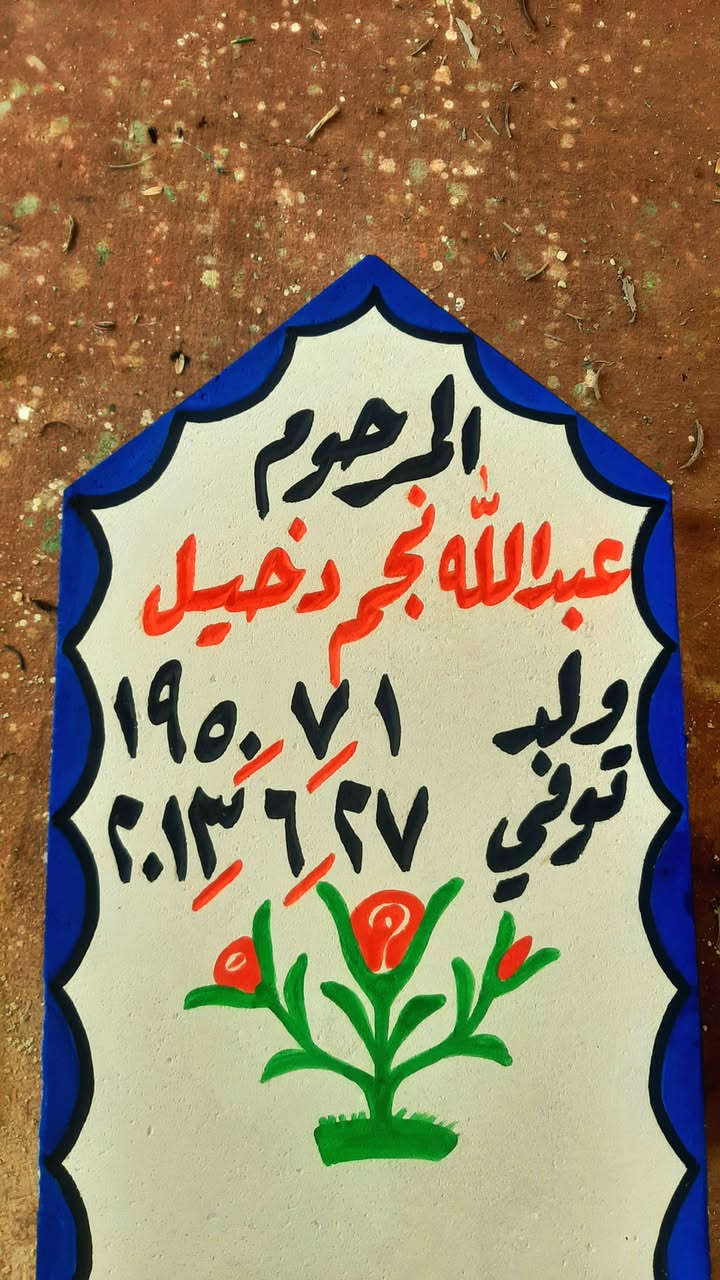 المرحوم
عبدالله نجم دخيل
ولد ١/٧/١٩٥٠
توفي ٢٧/٦/٢٠١٣